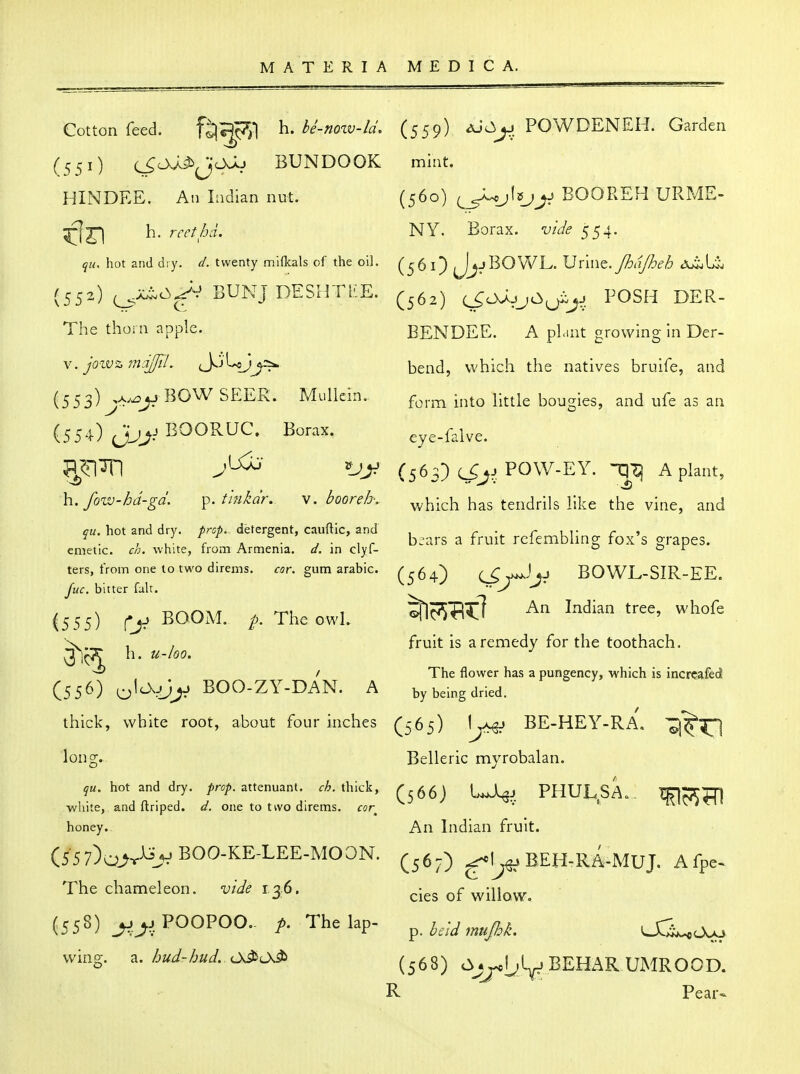 MATERIA MEDICA.
Cotton feed. h. bé-now-lá.
(551) BUNDOOK
HINDEE. An Indian nut.
h. reet,há.
qu. hot and dry. d. twenty miſkals of the oil.
(552) BUNJ DESHTEE.
The thorn apple.
v. jowz máſſil.
(553) BOW SEER. Mullein.
(554) BOORUC. Borax.
h. ſow-há-gá. p. tinkár. v. booreh.
qu. hot and dry. prop. detergent, cauſtic, and
emetic. ch. white, from Armenia. d. in clyſ-
ters, from one to two direms. cor. gum arabic.
ſuc. bitter ſalt.
(555) بوم BOOM. p. The owl.
h. u-loo.
(556) BOO-ZY-DÁN. A
thick, white root, about four inches
long.
qu. hot and dry. prop. attenuant. ch. thick,
white, and ſtriped. d. one to two direms. cor
honey.
(557) BOO-KE-LEE-MOON.
The chameleon. vide 136.
(558) POOPOO. p. The lap-
wing. a. hud-hud. هدهد
(559) POWDENEH. Garden
mint.
(560) BOOREH URME-
NY. Borax. vide 554.
(561) بول BOWL. Urine. ſháſheh شاشه
(562) POSH DER-
BENDEE. A plant growing in Der-
bend, which the natives bruiſe, and
form into little bougies, and uſe as an
eye-ſalve.
(563) POW-EY. A plant,
which has tendrils like the vine, and
bears a fruit reſembling fox's grapes.
(564) BOWL-SIR-EE.
An Indian tree, whoſe
fruit is a remedy for the toothach.
The flower has a pungency, which is increaſed
by being dried.
(565) BE-HEY-RÁ.
Belleric myrobalan.
(566) PHUL,SÁ.
An Indian fruit.
(567) BEH-RÁ-MUJ. A ſpe-
cies of willow.
p. beid muſhk. بيدمشك
(568) BEHAR UMROOD.
R Pear-